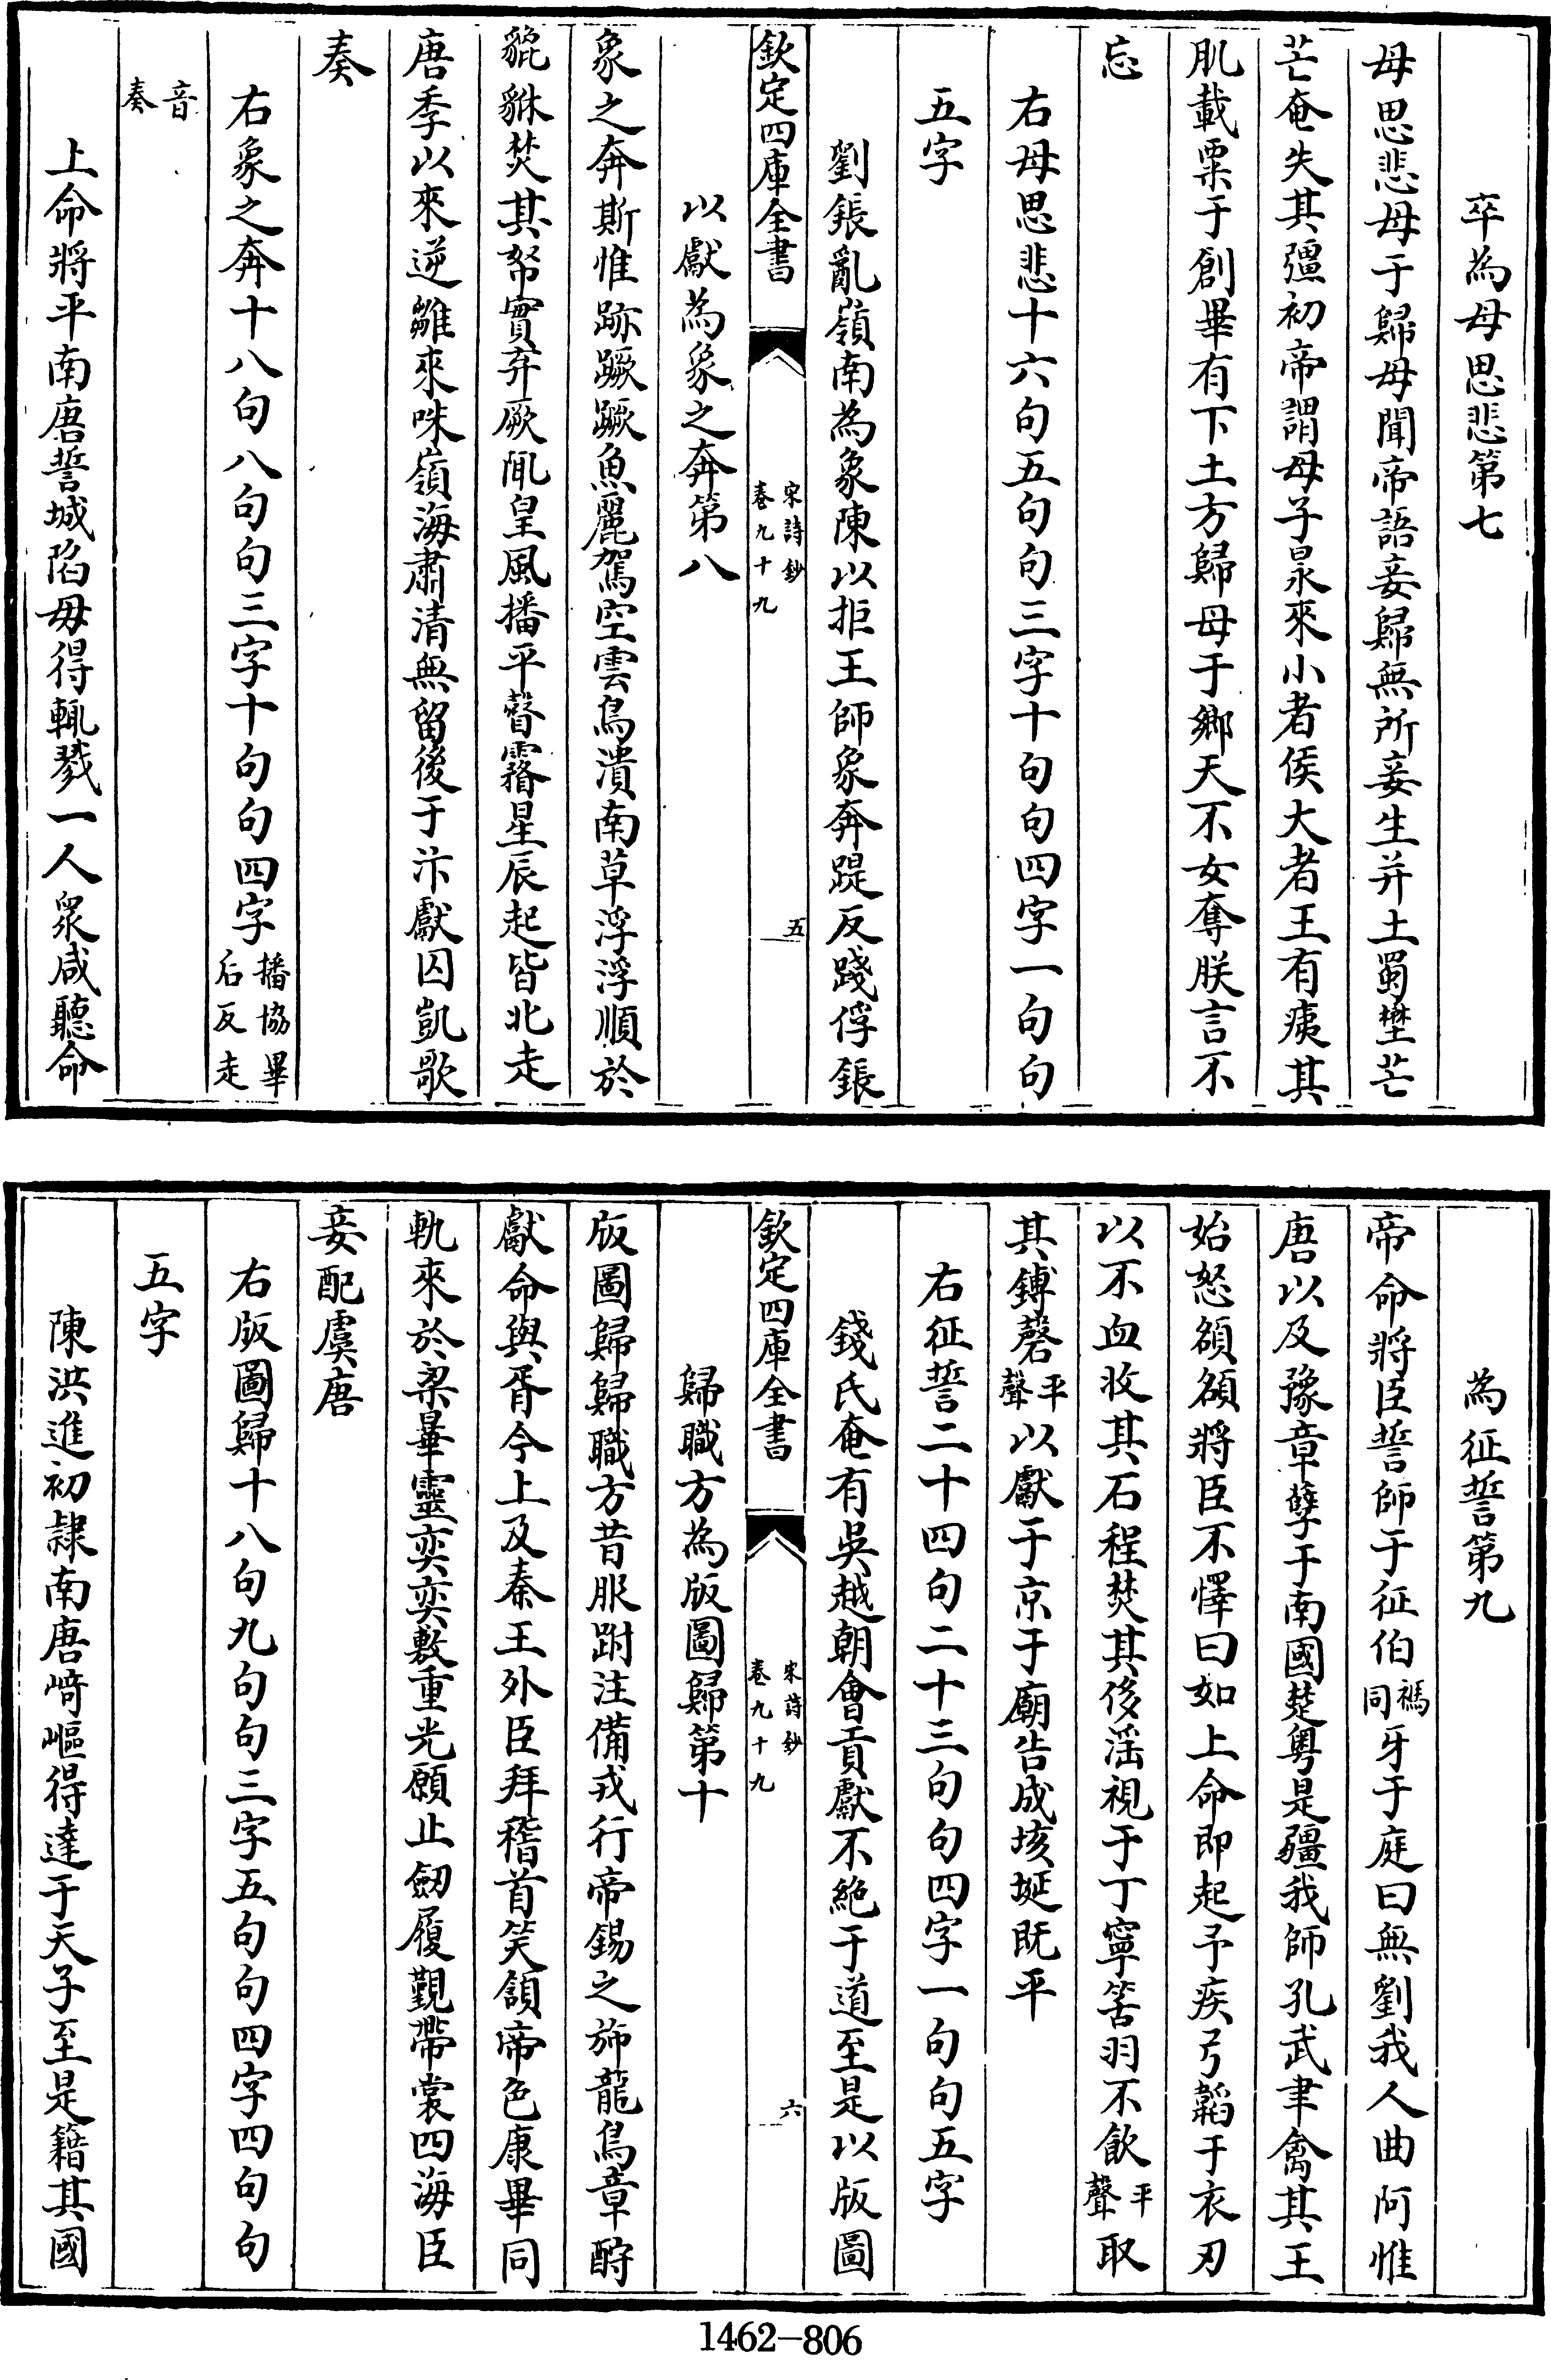 卒為母思悲第七
母思悲母于歸母聞帝語妾歸無所妾生并土蜀㯶芒
芒奄失其彊初帝謂母子㫷來小者侯大者王有痍其
肌載粟于創畢有下土方歸母于鄉天不女奪朕言不
忘
右母思悲十六句五句句三字十句句四字一句句
五字
劉鋹亂嶺南為象陳以拒王師象奔踶反踐俘鋹
欽定四庫全書
宋詩鈔
卷九十九
五
以獻為象之奔第八
象之奔斯惟跡蹶蹶魚麗駕空雲鳥潰南草浮浮順於
貔貅焚其帑實弃厥颪皇風播平瞽霿星辰起皆北走
唐季以來逆雛來咮嶺海肅清無留後于汴獻囚凱歌
奏
右象之奔十八句八句句三字十句句四字播協畢后反走
音奏
上命將平南唐誓城陷毋得輒戮一人衆咸聽命
為征誓第九
帝命將臣誓師于征伯禡同牙于庭曰無劉我人曲阿惟
唐以及豫章孽于南國楚粤是疆我師孔武聿禽其王
始怒頟頟將臣不懌曰如上命即起予疾弓韜于衣刃
以不血收其石程焚其侈淫視于丁寧筈羽不飲平聲取
其鎛磬平聲以獻于京于廟告成垓埏既平
右征誓二十四句二十三句句四字一句句五字
錢氏奄有吳越朝會貢獻不絶于道至是以版圖
欽定四庫全書
宋詩鈔
卷九十九
六
歸職方為版圖歸第十
版圖歸歸職方昔服跗注備戎行帝錫之斾龍鳥章酹
獻命與胥今上及秦王外臣拜稽首笑頷帝色康畢同
軌來於梁畢靈奕奕敷重光願止劔履觀帶裳四海臣
妾配虞唐
右版圖歸十八句九句句三字五句句四字四句句
五字
陳洪進初隷南唐崎嶇得達于天子至是籍其國
1462—806